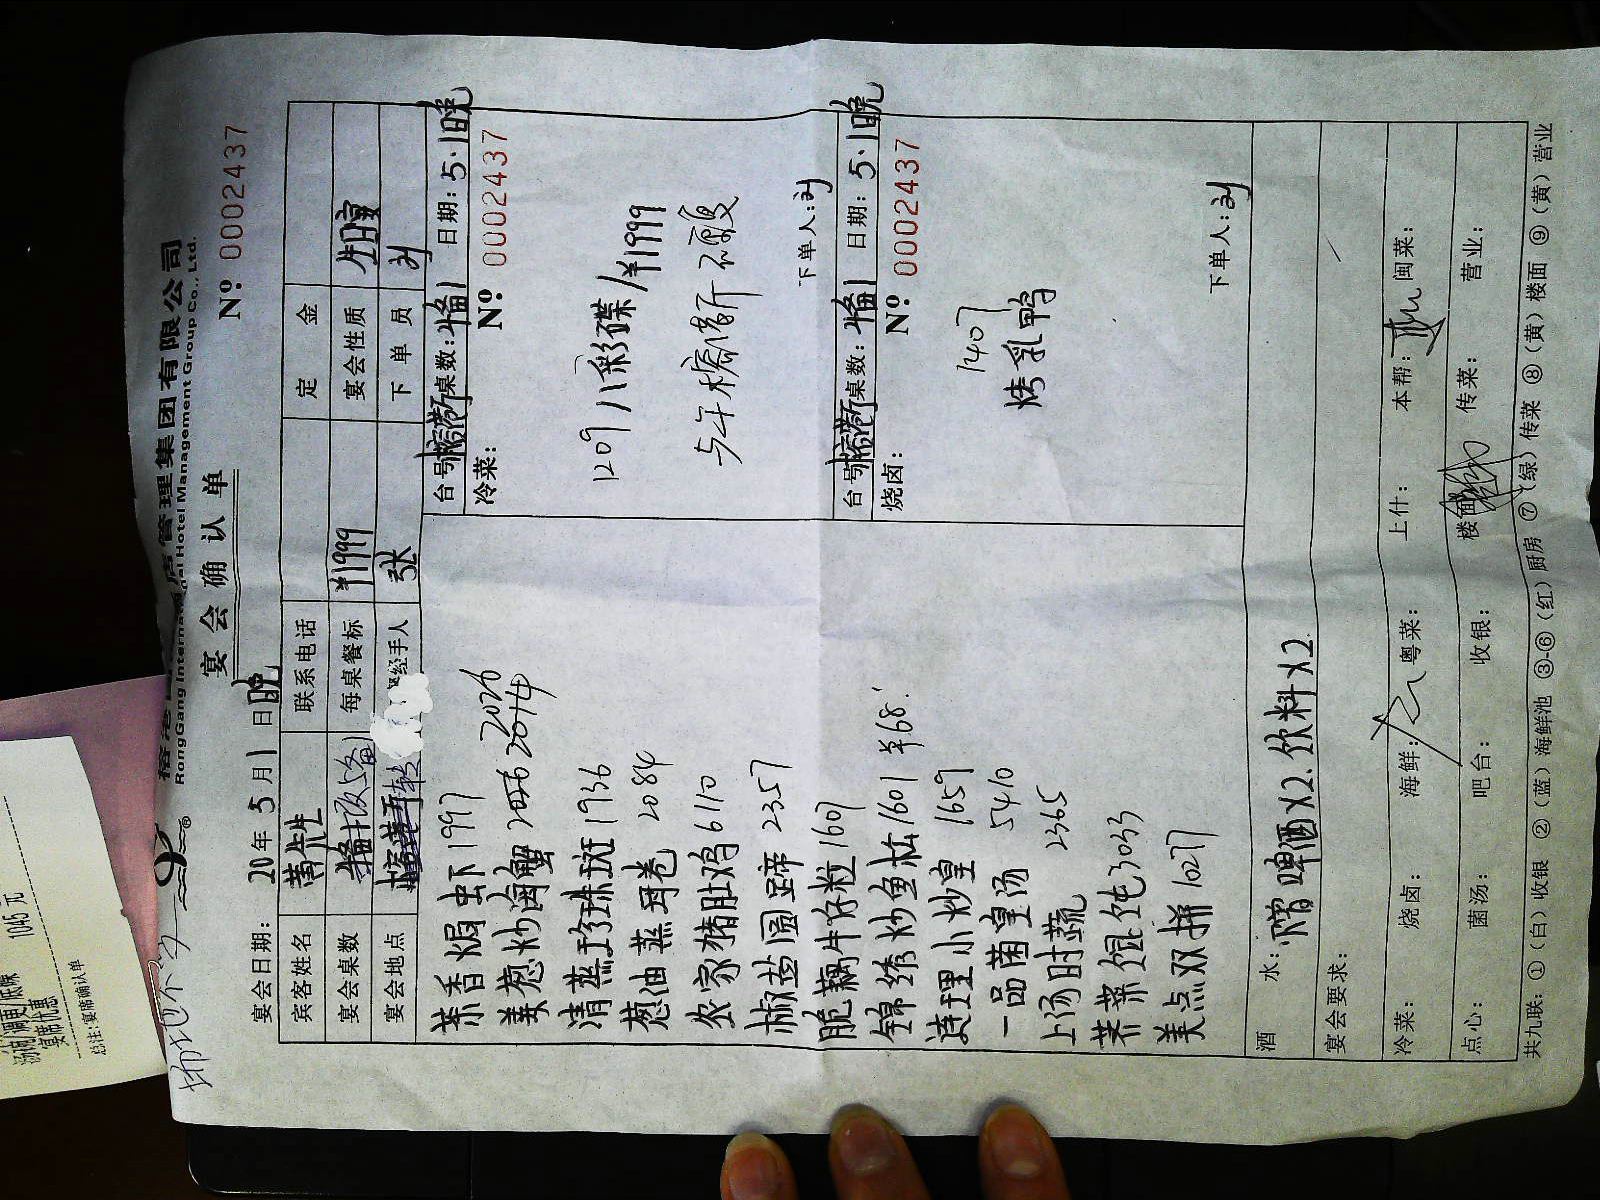 店管理集团有限公司
RongGang International Hotel Management Group Co., Ltd.
宴会确认单
№ 0002437
宴会日期: 20年5月1日晚
宾客姓名 黄先生 联系电话 定金
宴会桌数 每桌餐标 ¥1999 宴会性质 生日宴
宴会地点 经手人 张 下单员 刘
茶香焗虾 1997
姜葱炒海蟹 2026
清蒸珍珠斑 1936
葱油蒸 卷 2084
农家猪肚鸡 6110
椒盐圆蹄 2357
脆藕牛仔粒 1607
锦绣炒鱼松 1601 ¥68!
连理小炒皇 1659
一品菌皇汤 5410
上汤时蔬 2365
荠菜馄饨 3033
美点双拼 1027
台号 桌数: 日期: 5.1晚
冷菜: № 0002437
1209 八彩碟/¥1999
下单人: 刘
台号 桌数: 日期: 5.1晚
烧卤: № 0002437
1407
烤乳鸭
下单人: 刘
酒水: 赠啤酒X2.饮料X2
宴会要求:
冷菜: 烧卤: 海鲜: 粤菜: 上什: 本帮: 闽菜:
点心: 菌汤: 吧台: 收银: 楼面 传菜: 营业:
共九联: ①(白)收银 ②(蓝)海鲜池 ③-⑥(红)厨房 ⑦(绿)传菜 ⑧(黄)楼面 ⑨(黄)营业
宴席优惠 1045 元
总注:宴席确认单